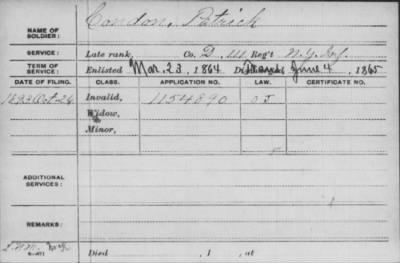 Condon, Patrick
NAME OF SOLDIER:
SERVICE: Late rank, Co. D, 111 Reg't N.Y. Inf.
TERM OF SERVICE: Enlisted Mar. 23, 1864 Disch'd June 4, 1865
DATE OF FILING. CLASS. APPLICATION NO. LAW. CERTIFICATE NO.
1893 Oct. 24 Invalid, 1154890
Widow,
Minor,
ADDITIONAL SERVICES:
REMARKS:
Died , 1 , at